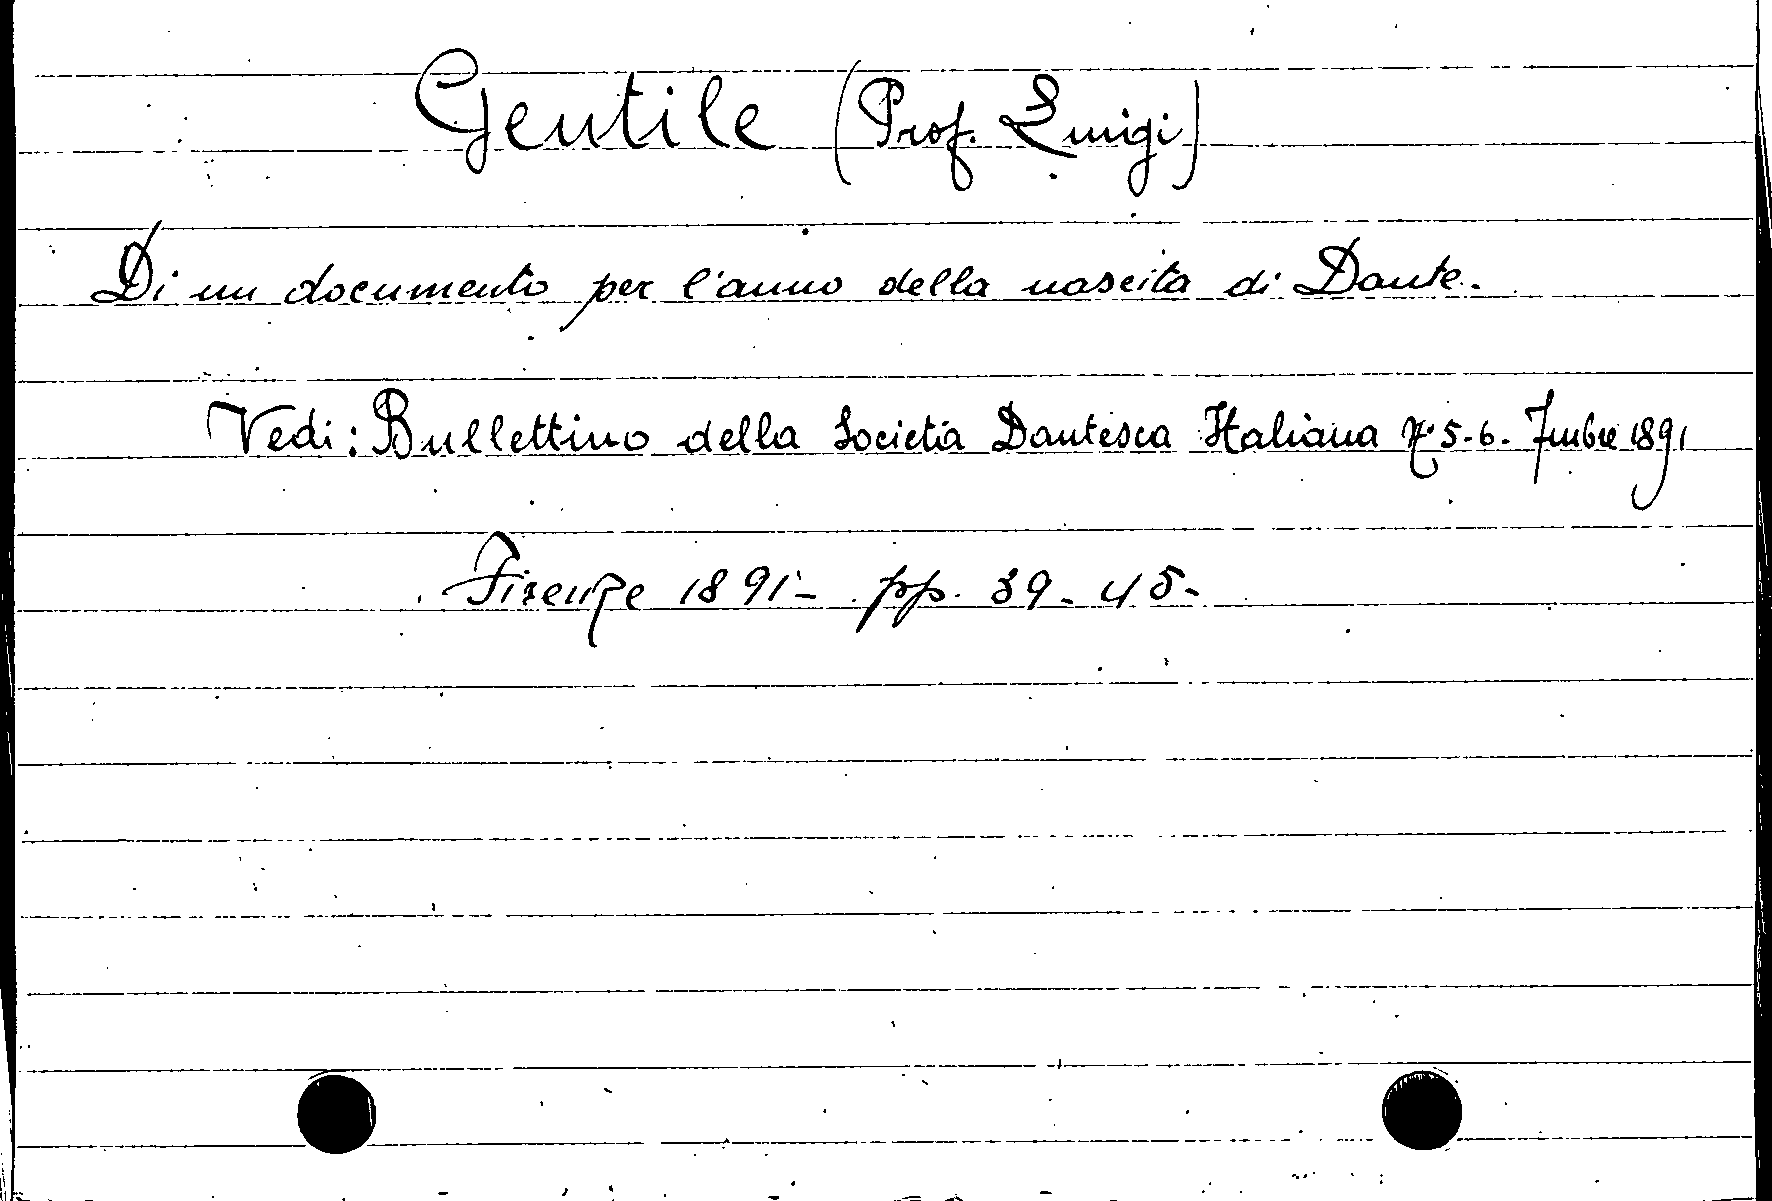 Gentile (Prof. Luigi)
Di un documento per l'anno della nascita di Dante.
Vedi: Bullettino della Società Dantesca Italiana No 5-6. 7mbre 1891
Firenze 1891 - pp. 39-45-